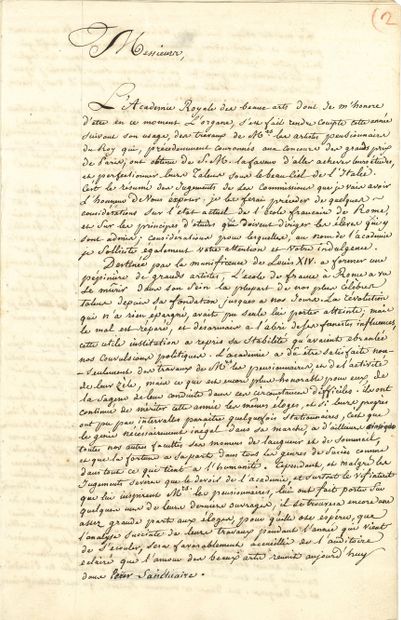 (2
Messieurs,
L'Academie Royale des beaux-arts dont je m'honore
d'etre en ce moment l'organe, s'est fait rendre compte cette année
suivant son usage, des travaux de Mrs les artistes pensionnaires
du Roy qui, précédemment couronnés aux concours des grands prix
de Paris, ont obtenu de S. M. la faveur d'aller achever leurs études,
et perfectionner leurs talens sous le beau ciel de l'Italie.
C'est le résumé des Jugements de ses Commissions que je vais avoir
l'honneur de Vous exposer. je le ferai préceder de quelques
considérations sur l'état actuel de l'école francaise de Rome,
et sur les principes d'étude qui doivent diriger les élèves qui y
sont admis, considérations pour lesquelles, au nom de l'academie
je sollicite également votre attention et Votre indulgence.
Destinée par la munificence de Louis XIV. a former une
pepinière de grands artistes, l'école de france à Rome a vu
se mûrir dans son sein la plupart de nos plus célèbres
talens depuis sa fondation, jusques a nos jours. La révolution
qui n'a rien épargné, avait pu seule lui porter atteinte, mais
le mal est réparé, et désormais a l'abri de ses funestes influences,
cette utile institution a repris sa stabilité qu'avaient ébranlée
nos convulsions politiques. L'academie a dû être satisfaite non-
seulement des travaux de Mrs les pensionnaires et de l'activité
de leur zèle, mais ce qui est encore plus honorable pour eux de
la sagesse de leur conduite dans des circonstances difficiles. ils ont
continué de mériter cette année les mêmes éloges, et si leurs progrès
ont pu par intervalles paraître quelquefois stationnaires, c'est que
le génie nécessairement inégal dans sa marche, a d'ailleurs
toutes nos autres facultés ses momens de langueur et de sommeil,
et que la fortune a sa part dans tous les genres de succès comme
dans tout ce qui tient a l'humanité. Cependant, et malgré les
Jugements sévères que le devoir de l'Academie, et surtout le vif intérêt
que lui inspirent Mrs. les pensionnaires, lui ont fait porter sur
quelques uns de leurs derniers ouvrages, il se trouvera encore une
assez grande part aux éloges, pour qu'elle ose espérer, que
l'analyse succincte de leurs travaux pendant l'année qui vient
de s'écouler, sera favorablement accueillie de l'auditoire
éclairé que l'amour des beaux arts reunit aujourd'huy
dans sanctuaire.